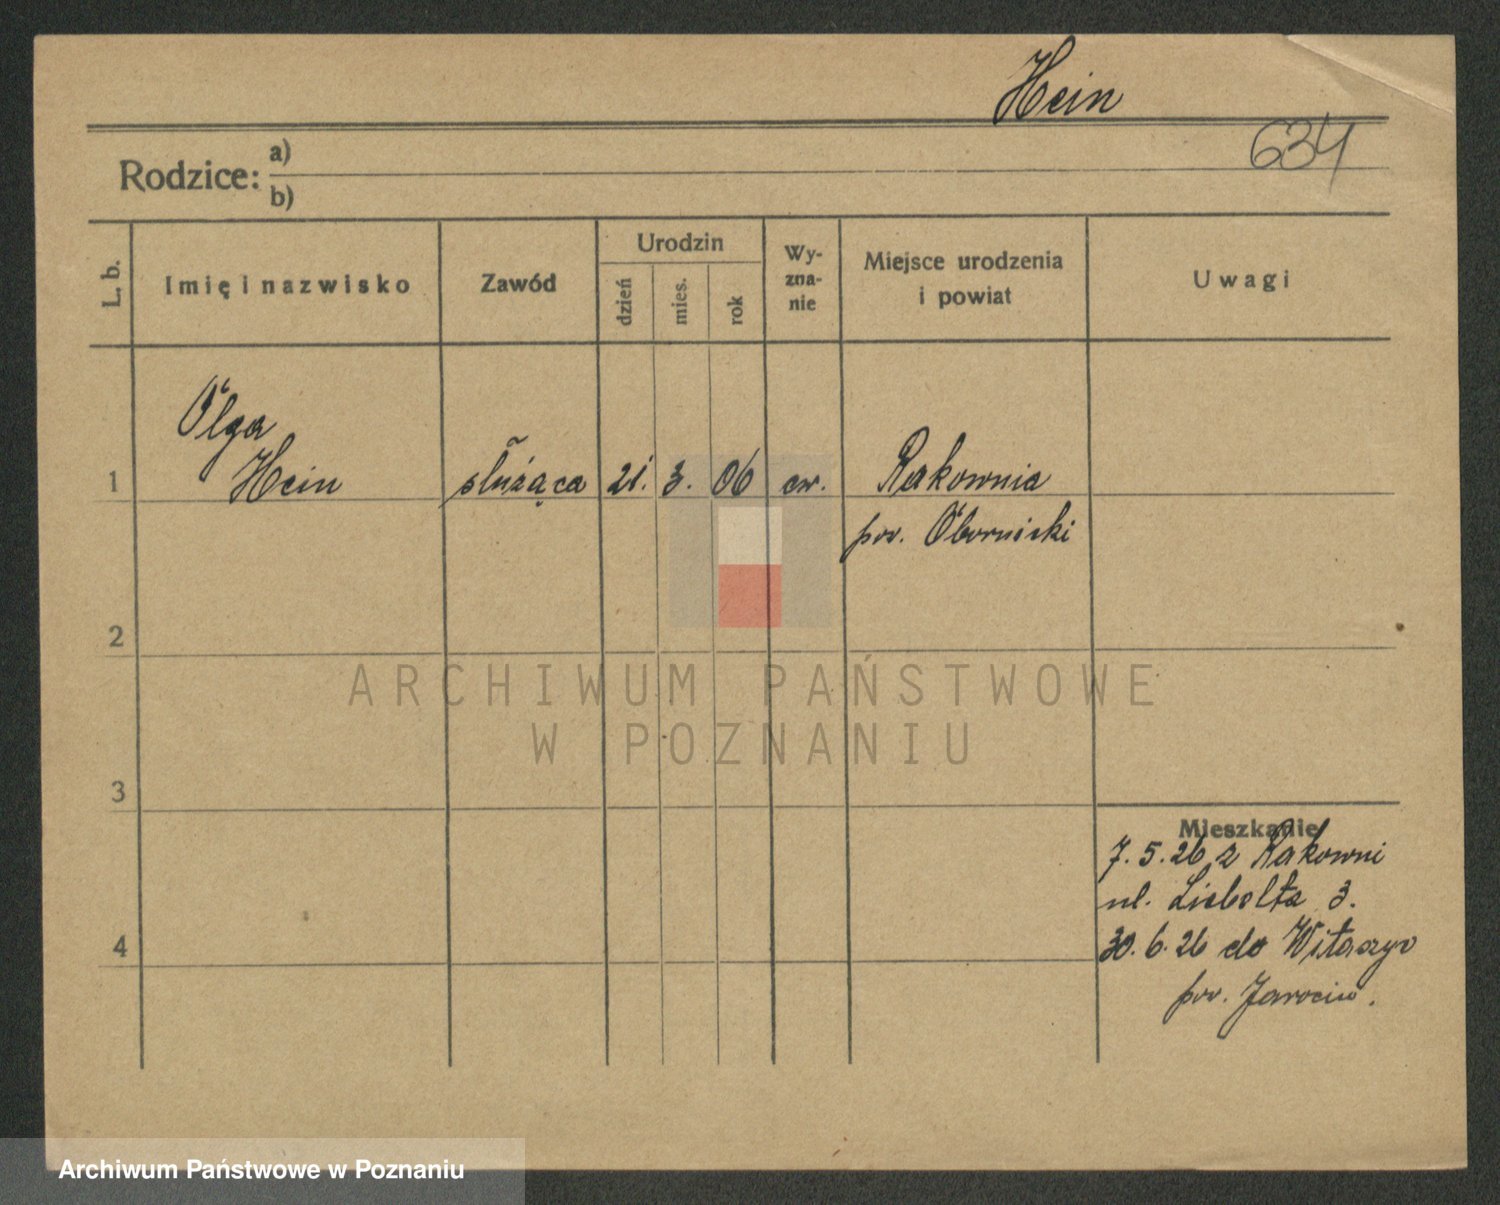 Hein
634
Rodzice: a)
b)
L. b.
Imię i nazwisko
Zawód
Urodzin
dzień
mies.
rok
Wy-
zna-
nie
Miejsce urodzenia
i powiat
Uwagi
Olga
1 Hein służąca 21. 3. 06 ew. Rakownia
pow. Obornicki
2
3
4
Mieszkanie
7. 5. 26 z Rakowni
ul. Liebelta 3.
30. 6. 26 do Witaszyc
pow. Jarocin.
ARCHIWUM PAŃSTWOWE
W POZNANIU
Archiwum Państwowe w Poznaniu